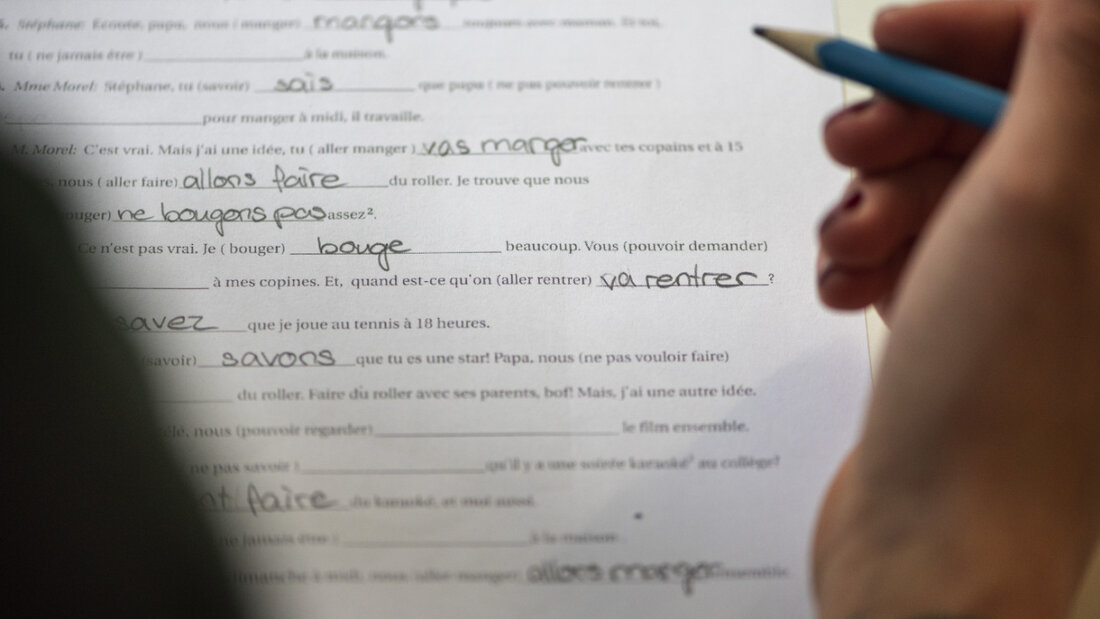 Stéphane: Ecoute, papa, nous (manger) mangors toujours avec maman. Et toi,
tu ( ne jamais être ) à la maison.
Mme Morel: Stéphane, tu (savoir) sais que papa ( ne pas pouvoir rentrer )
pour manger à midi, il travaille.
M. Morel: C'est vrai. Mais j'ai une idée, tu ( aller manger ) vas marger avec tes copains et à 15
nous ( aller faire) allons faire du roller. Je trouve que nous
ouger) ne bougons pas assez².
Ce n'est pas vrai. Je ( bouger) bouge beaucoup. Vous (pouvoir demander)
à mes copines. Et, quand est-ce qu'on (aller rentrer) va rentrer ?
savez que je joue au tennis à 18 heures.
(savoir) savons que tu es une star! Papa, nous (ne pas vouloir faire)
du roller. Faire du roller avec ses parents, bof! Mais, j'ai une autre idée.
nous (pouvoir regarder) le film ensemble.
ne pas savoir ) qu'il y a une soirée karaoké au collège?
nt faire du karaoké, et moi aussi.
ne jamais être ) à la maison.
dimanche à midi, nous aller manger allors marger ensemble.